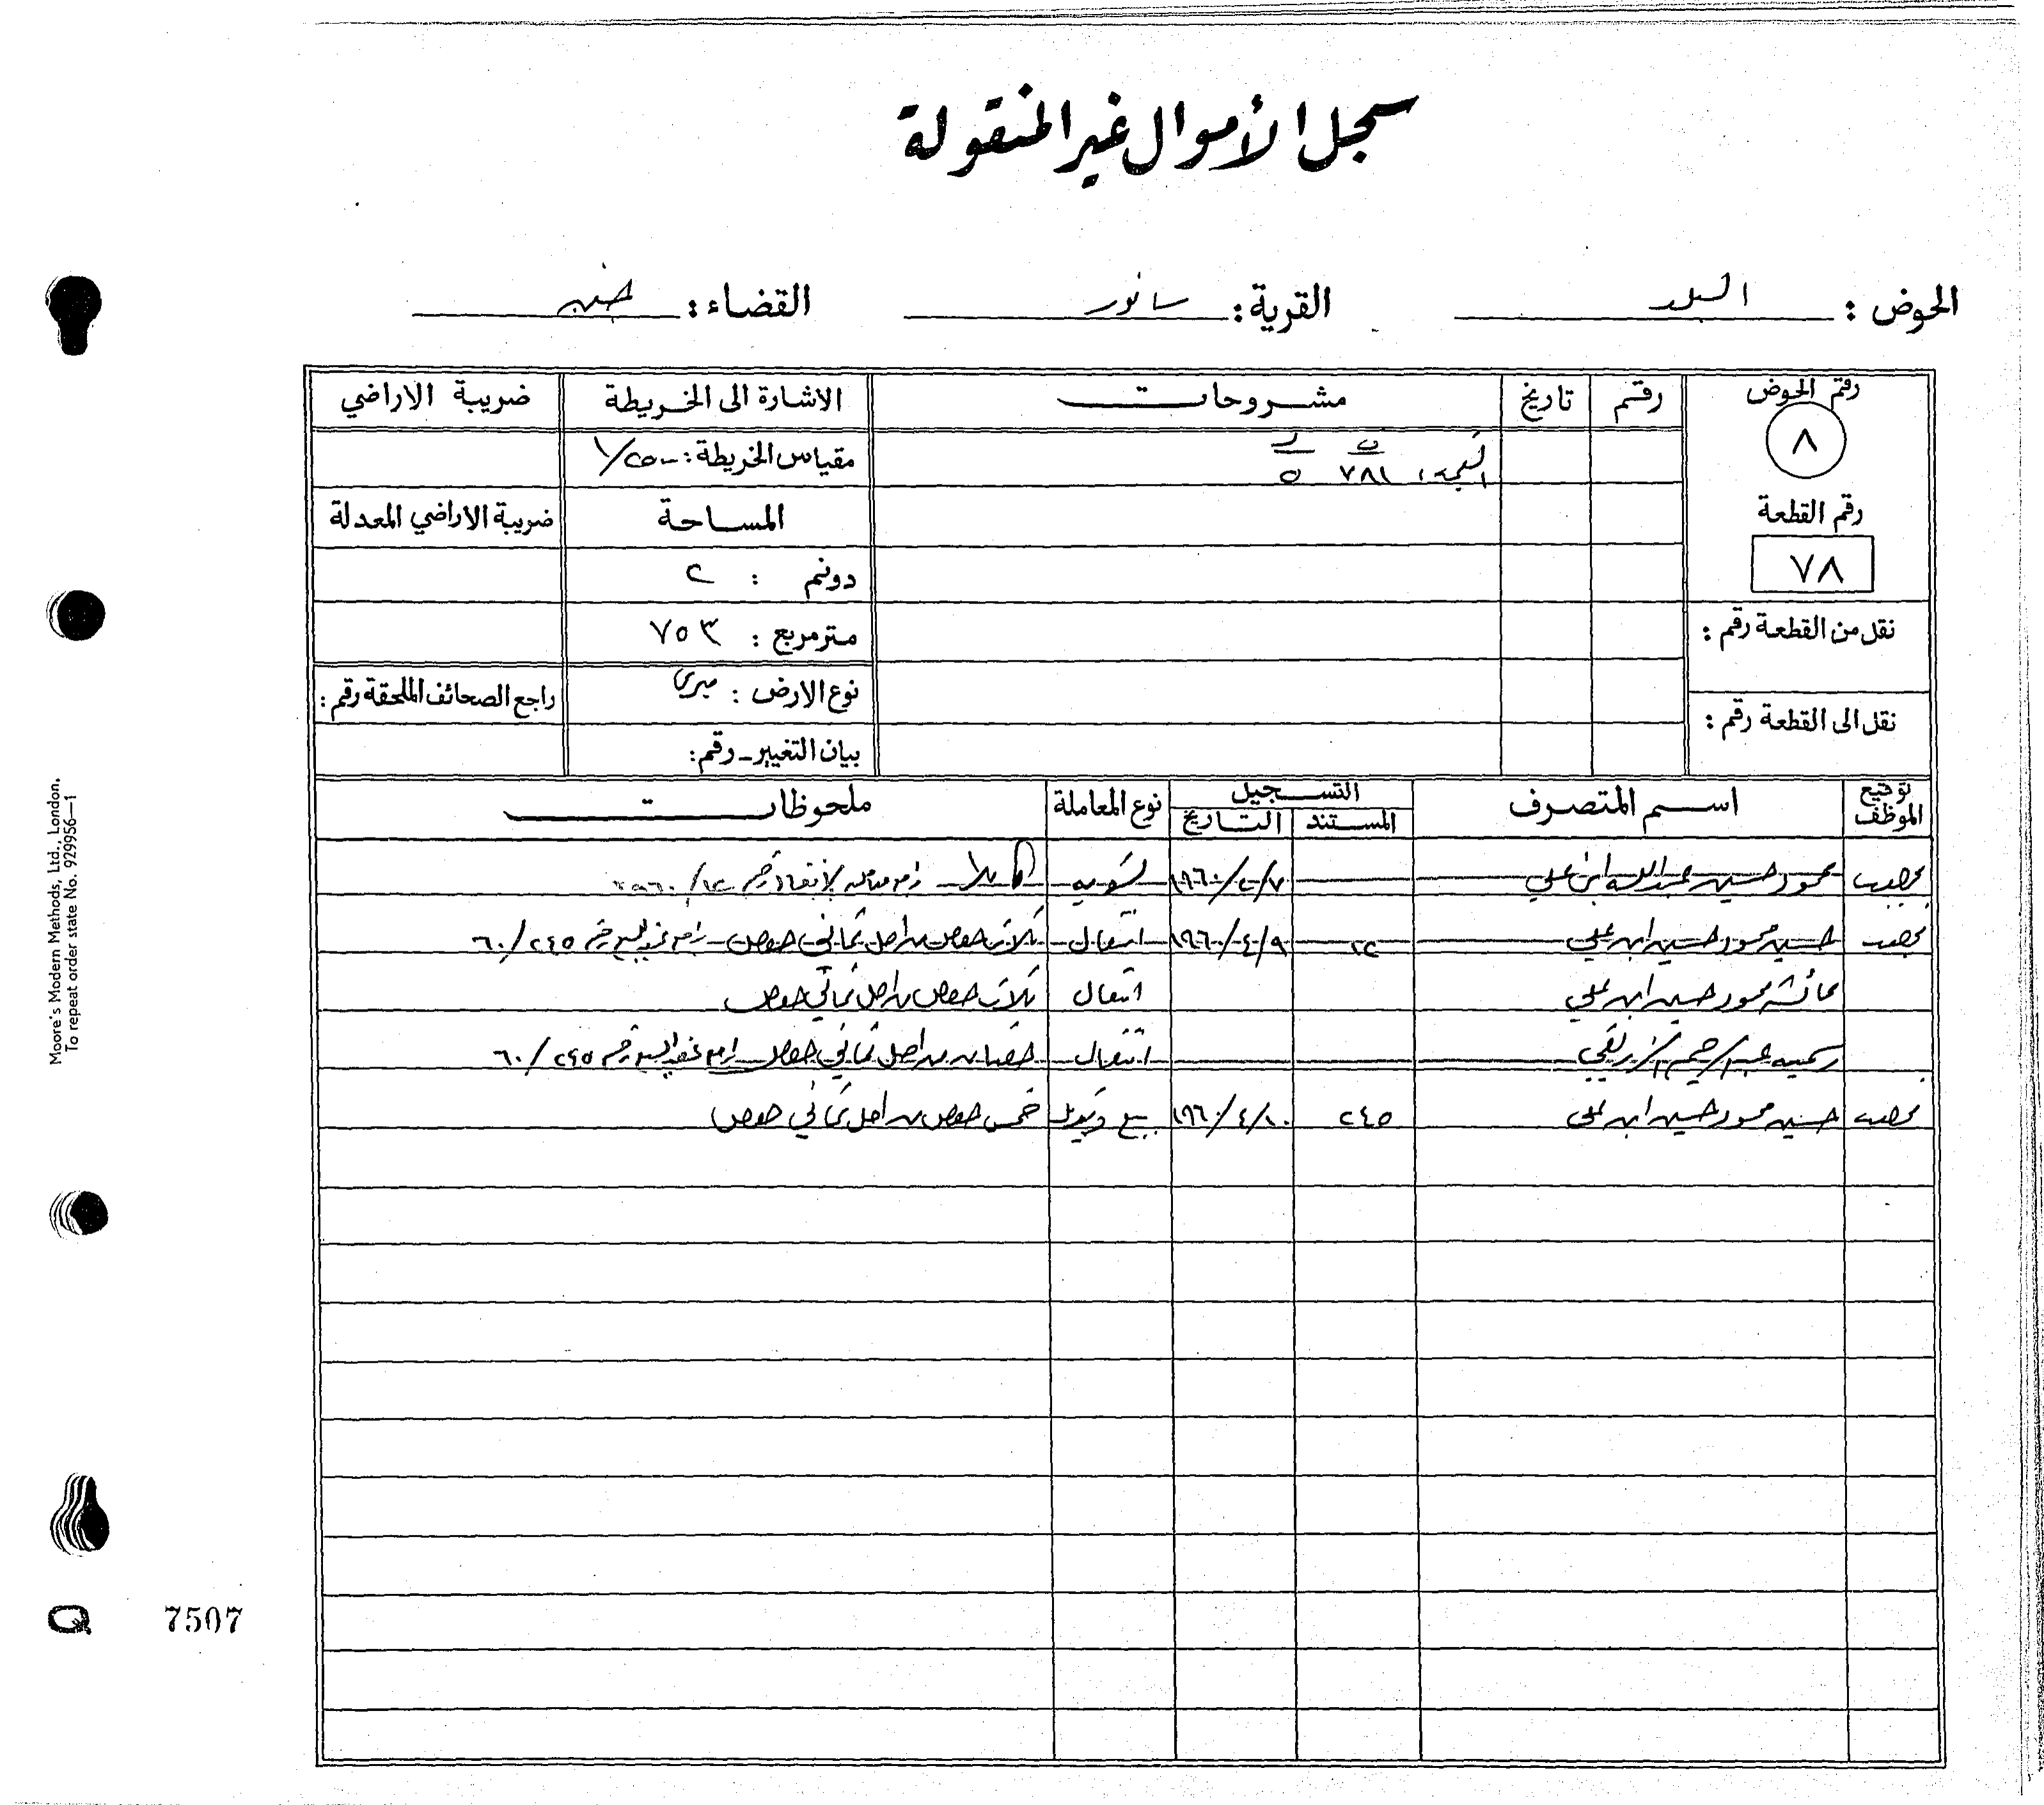 سجل الأموال غير المنقولة
الحوض : البلد القرية : سانور القضاء : جنين
رقم الحوض رقم تاريخ مشروحات الاشارة الى الخريطة ضريبة الاراضي
٨ ٧٨١ ٥ مقياس الخريطة : ١/٢٥٠٠
رقم القطعة المساحة ضريبة الاراضي المعدلة
٧٨ دونم : ٢
نقل من القطعة رقم : متر مربع : ٧٥٣
نوع الارض : ميري راجع الصحائف الملحقة رقم :
نقل الى القطعة رقم : بيان التغيير - رقم :
توقيع الموظف اسم المتصرف التسجيل نوع المعاملة ملحوظات
المستند التاريخ
محمود حسين عبدالله ابن علي ١٩٦٠/٢/٧ تسويه كاملا
حسين محمود حسين ابن علي ٢٢ ١٩٦٠/٤/٩ انتقال ثلاث حصص من اصل ثماني حصص راجع عقد البيع رقم ٦٠/٢٤٥
عائشه محمود حسين ابن علي انتقال ثلاث حصص من اصل ثماني حصص
رسميه عبدالرحيم انتقال حصتان من اصل ثماني حصص راجع عقد البيع رقم ٦٠/٢٤٥
حسين محمود حسين ابن علي ٢٤٥ ١٩٦٠/٤/١٠ بيع خمس حصص من اصل ثماني حصص
Moore's Modern Methods, Ltd., London.
To repeat order state No. 929956—1
Q 7507